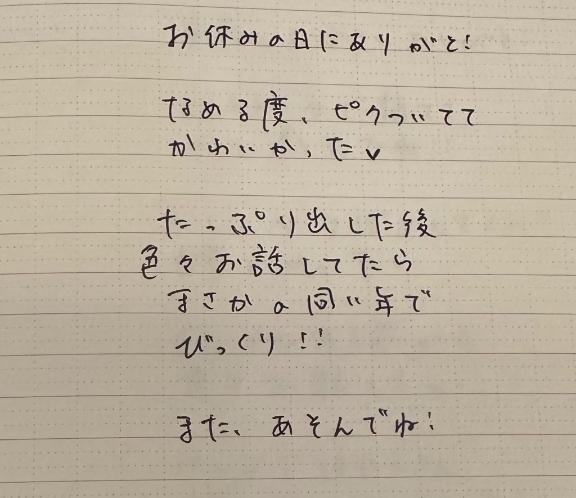 お休みの日にありがと!
なめる度、ピクついてて
かわいかったv
たっぷり出した後
色々お話してたら
まさかの同い年で
びっくり!!
また、あそんでね!